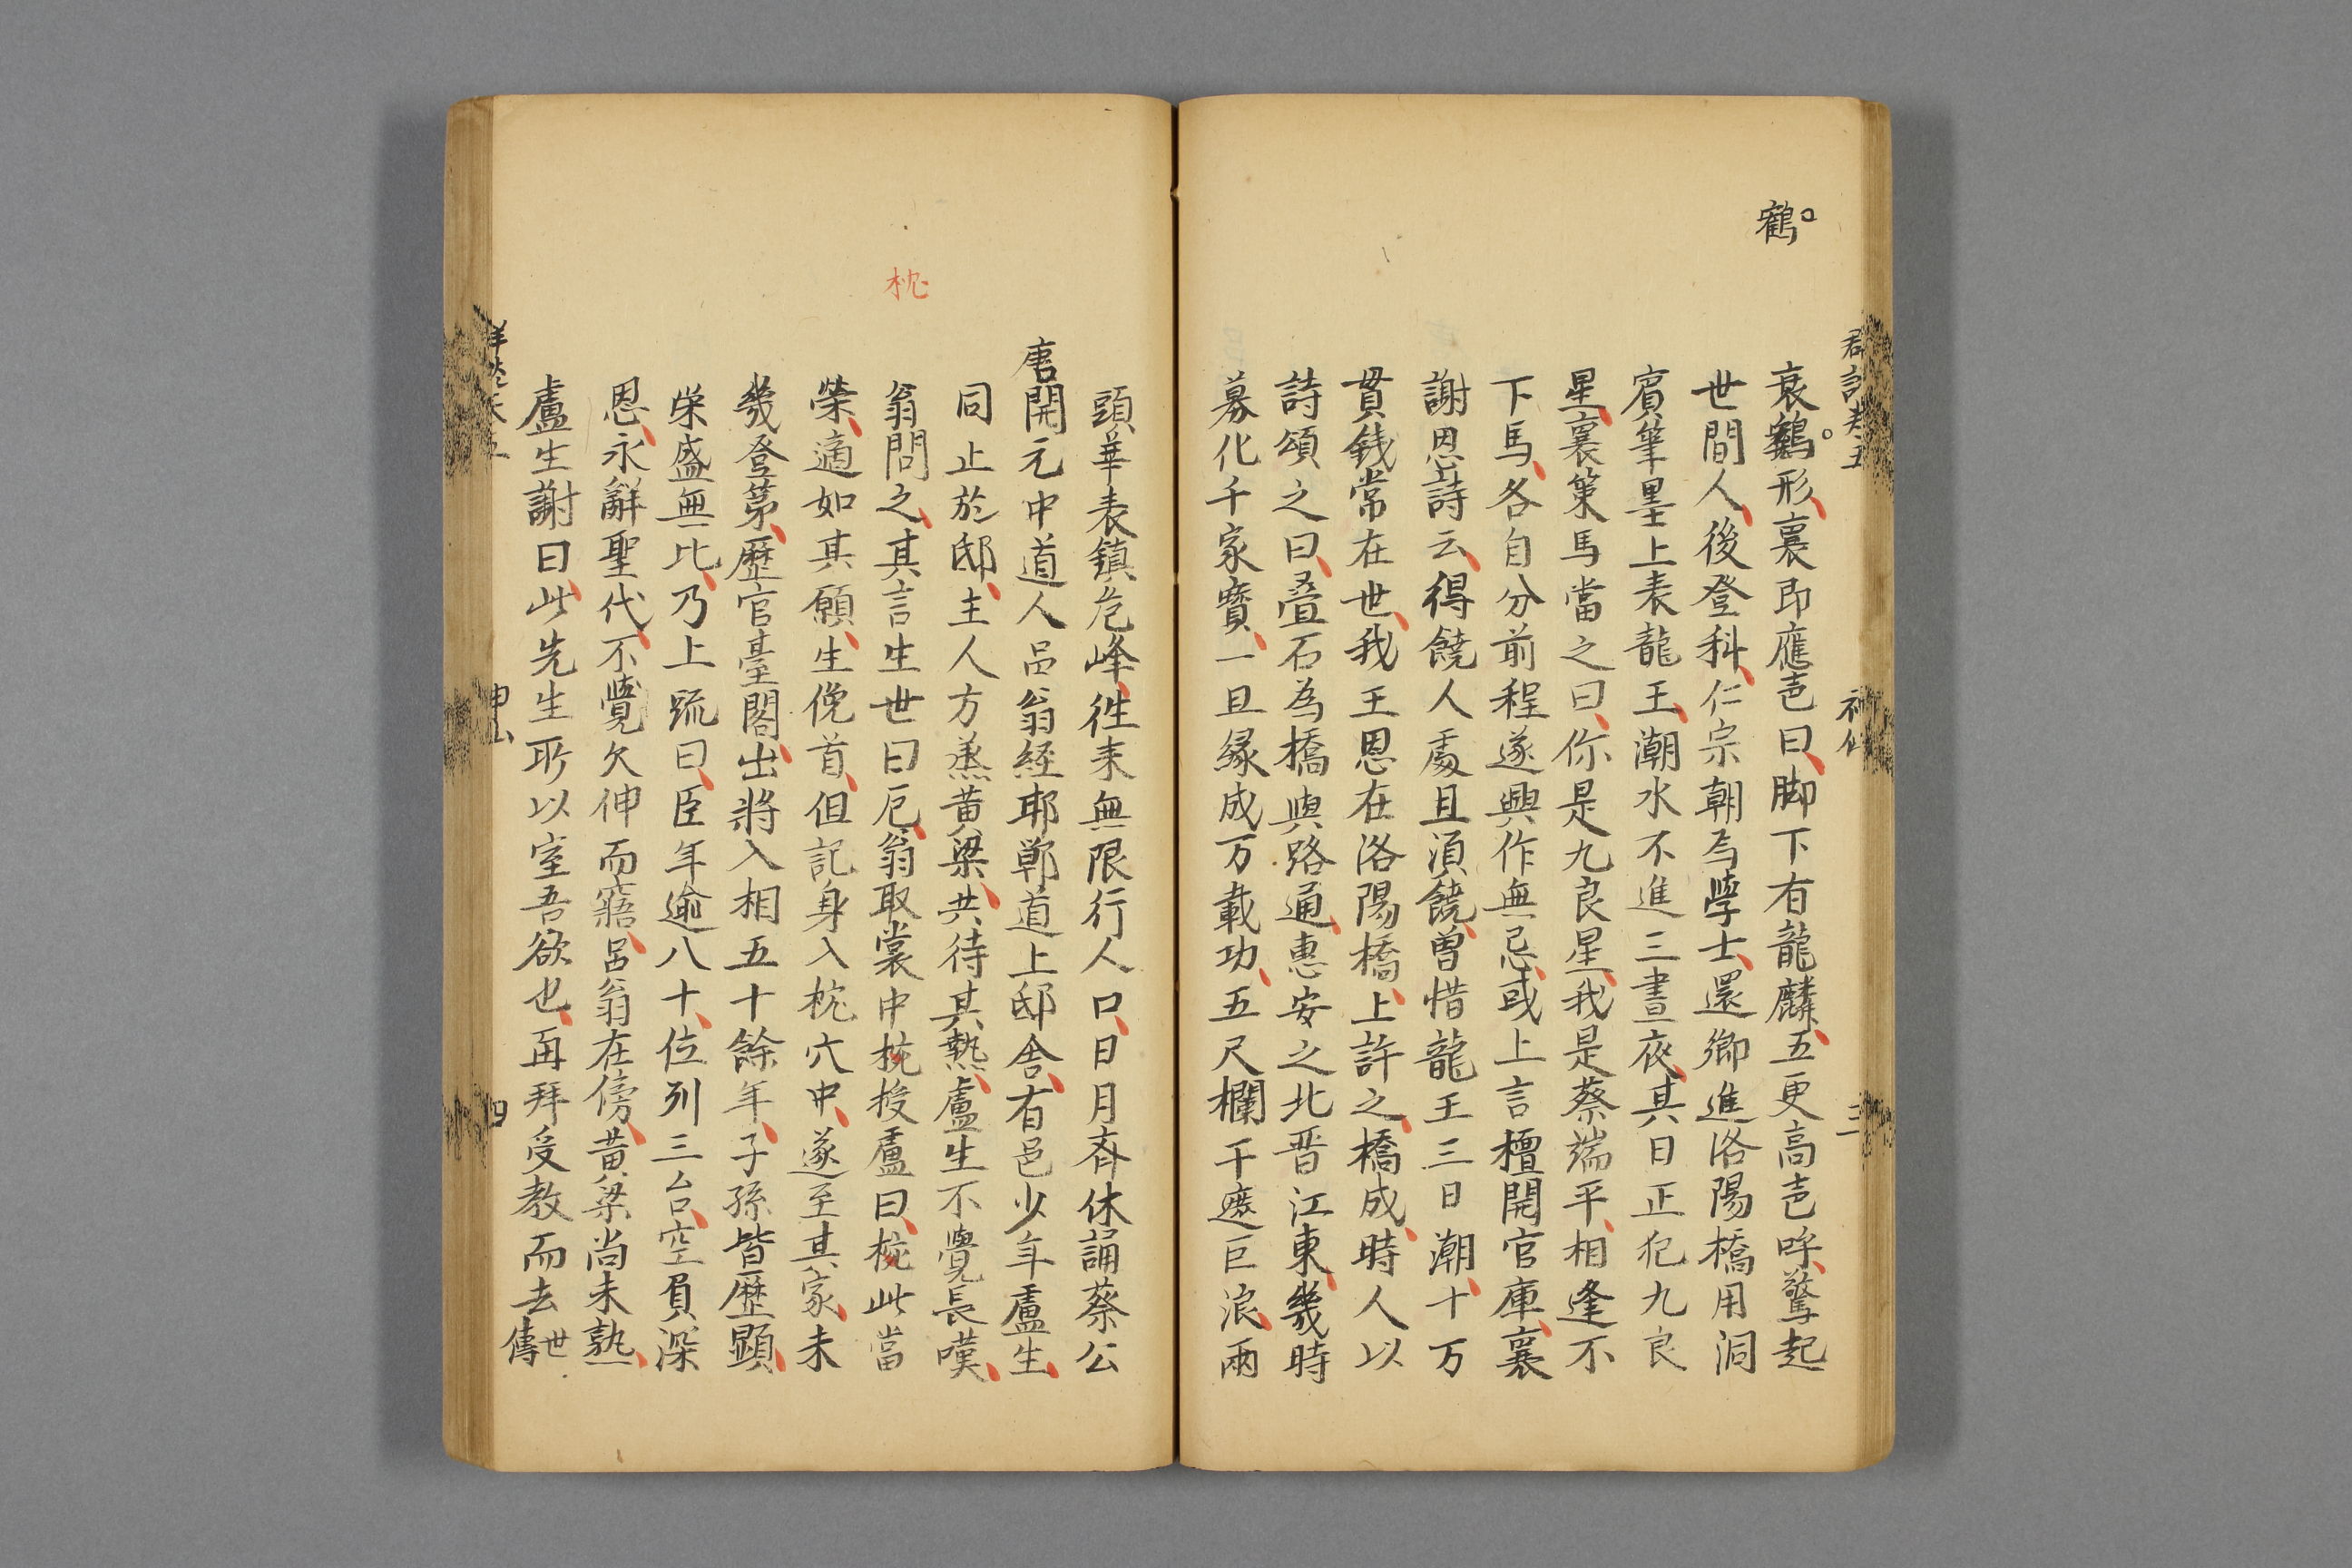 鶴
衰鶴形襄即應壱曰脚下有龍麟五更高壱呼驚起
世間人後登科仁宗朝為學士還鄉進洛陽橋用洞
賓筆墨上表龍王潮水不進三晝夜其日正犯九良
星襄策馬當之曰你是九良星我是蔡端平相逢不
下馬各自分前程遂興作無忌或上言檀開官庫襄
謝恩詩云得饒人處且須饒曾惜龍王三日潮十万
貫銭常在世我王恩在洛陽橋上許之橋成時人以
詩頌之曰叠石為橋與路通惠安之北晋江東幾時
募化千家寳一旦縁成万載功五尺欄干遮巨浪兩
三
頭華表鎮危峰徃来無限行人口日月斉休誦蔡公
唐開元中道人呂翁経邯鄲道上邸舎有邑少年盧生
同止於邸主人方蒸黄粱共待其熱盧生不覺長嘆
翁問之其言生世曰厄翁取裳中枕授盧曰枕此當
枕
榮適如其願生俛首但記身入枕穴中遂至其家未
幾登第歷官臺閣出將入相五十餘年子孫皆歷顯
栄盛無比乃上疏曰臣年逾八十位列三台空負深
恩永辭聖代不覺欠伸而寤呂翁在傍黄粱尚未熟
盧生謝曰此先生所以窒吾欲也再拜受教而去世傳
四